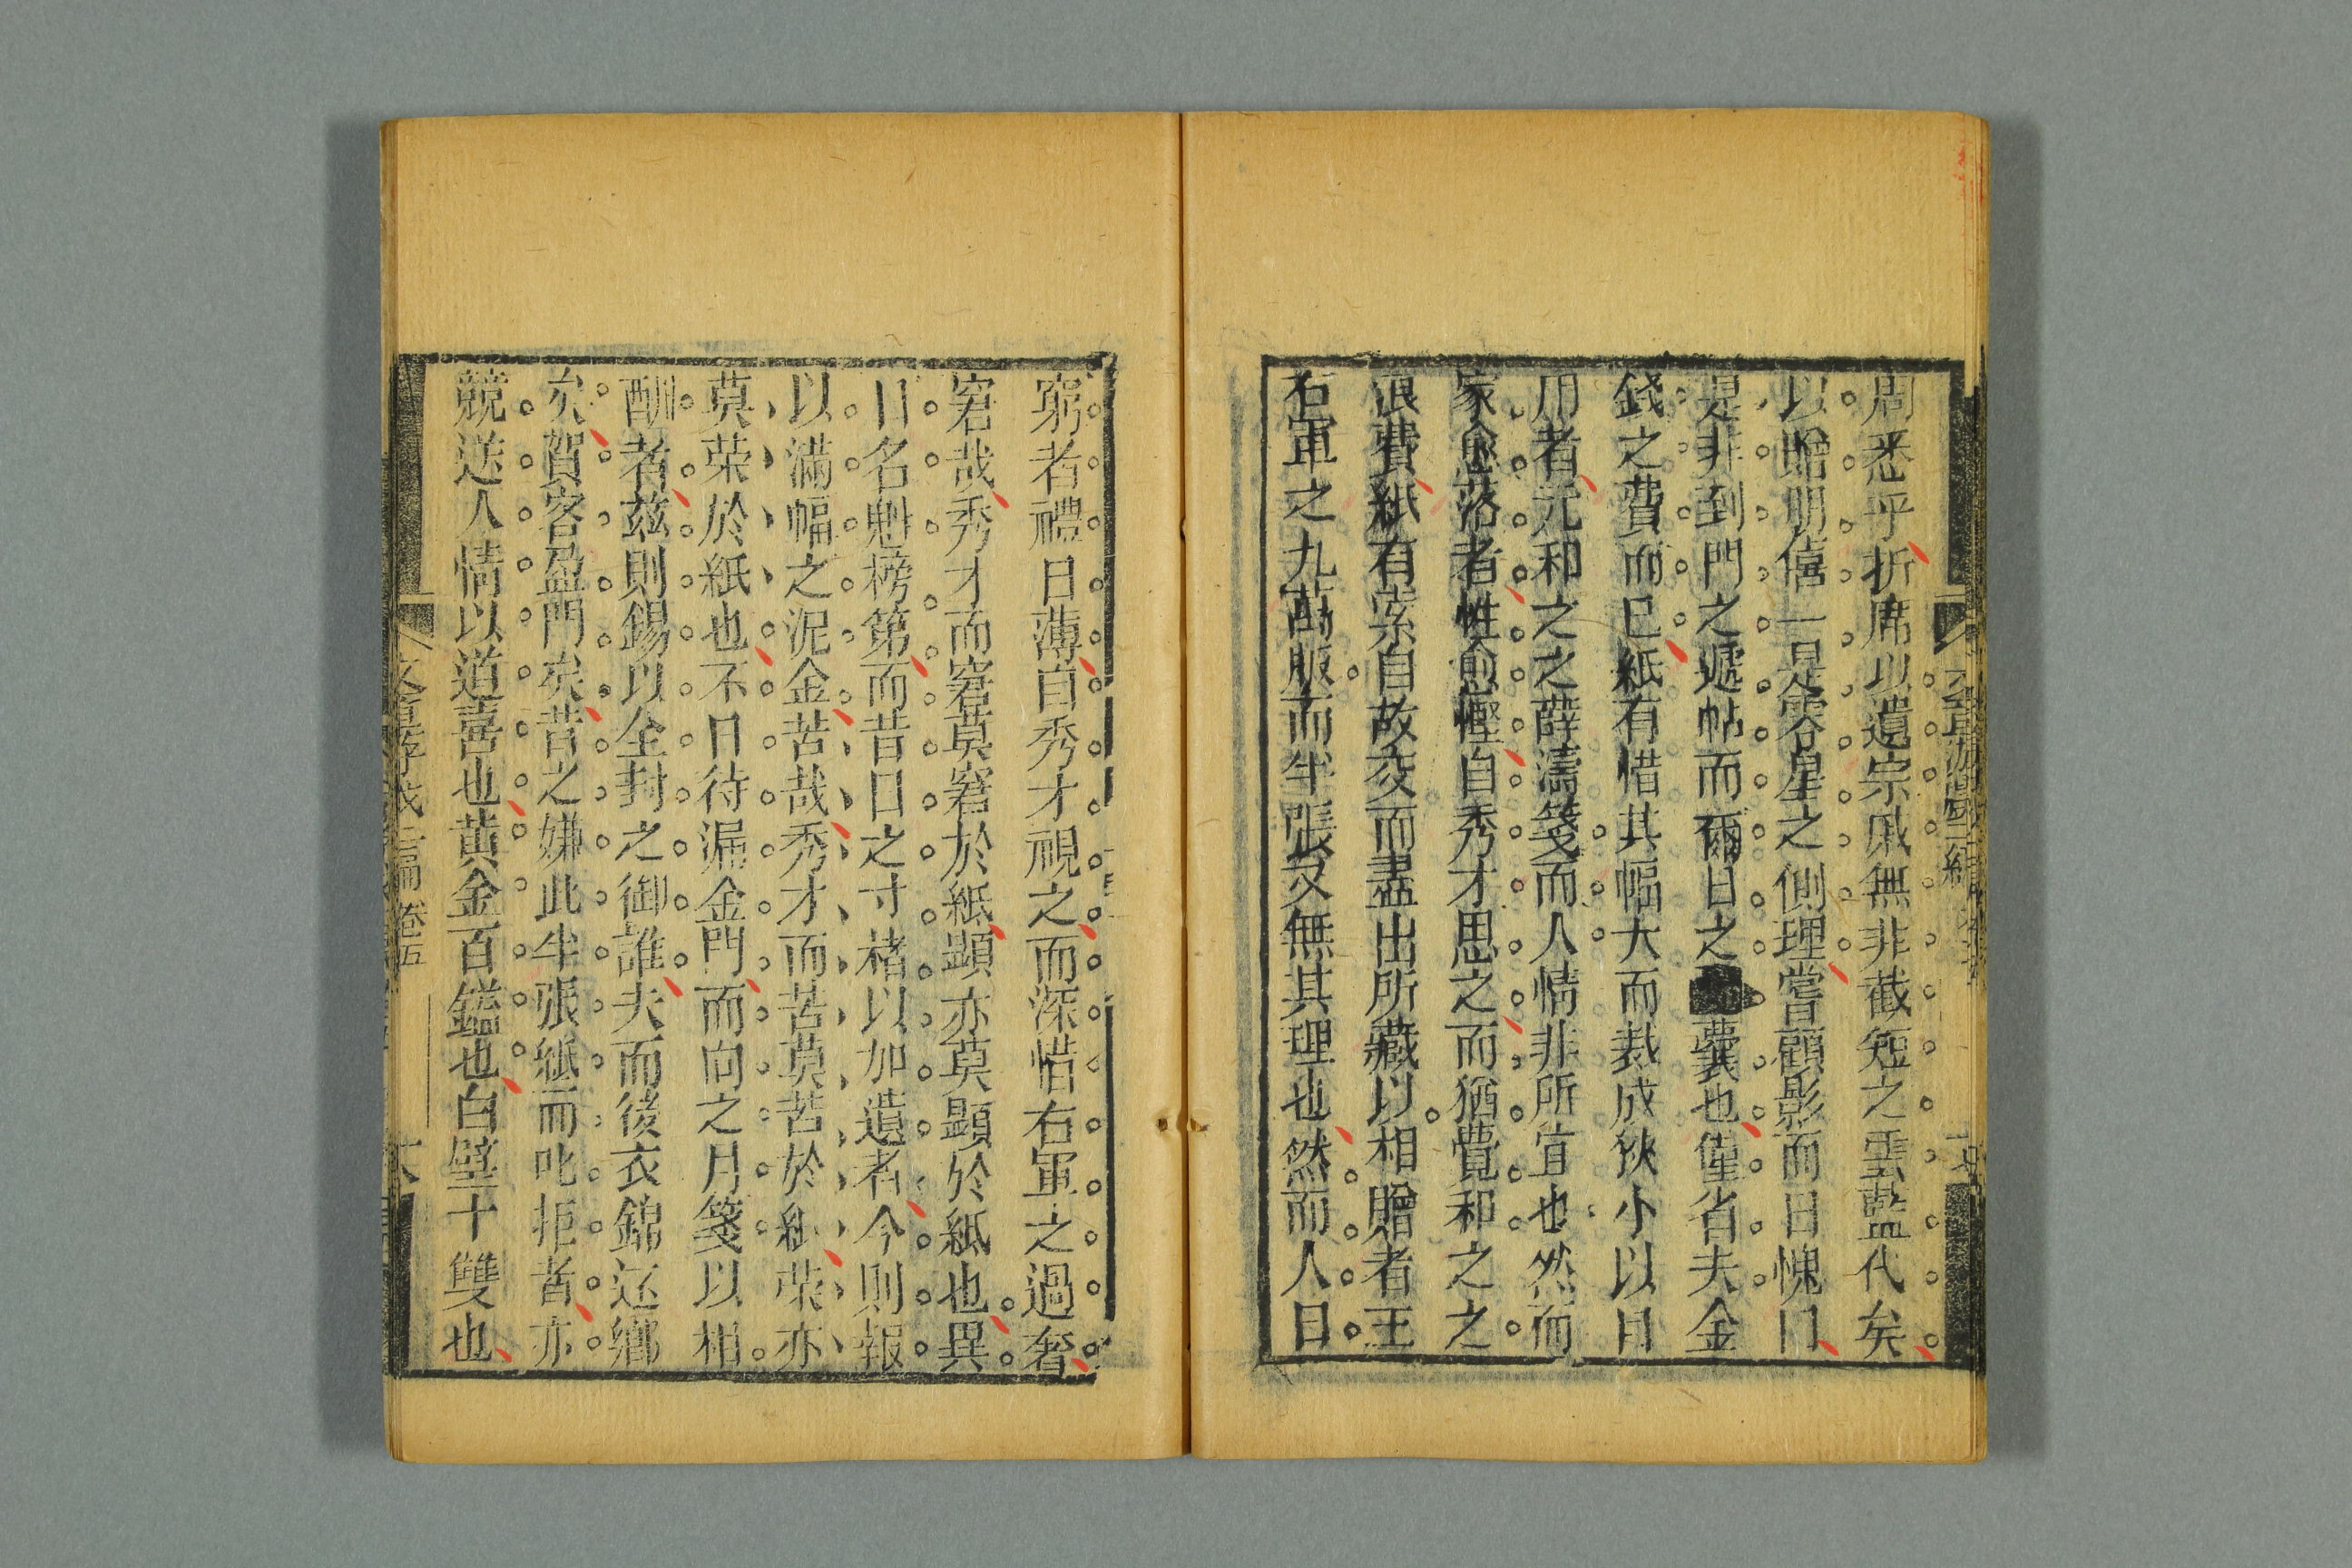 周悉乎折席以遺宗戚無非截短之雲藍代矣
以贈朋僖一是零星之側理嘗顧影而日愧門
是非到門之遞帖而爾日之囊也僅省夫金
錢之費而已紙有惜其幅大而裁成狹小以日
用者元和之之薛濤箋而人情非所宜也然而
家愈落者性愈慳自秀才思之而猶覺和之之
浪費紙有索自故交而盡出所藏以相贈者王
右軍之九萬服而半張又無其理也然而人日
窮者禮日薄自秀才視之而深惜右軍之過奢
窘哉秀才而窘莫窘於紙顯亦莫顯於紙也異
日名魁榜第而昔日之寸楮以加遺者今則報
以滿幅之泥金苦哉秀才而苦莫苦於紙榮亦
莫榮於紙也不日待漏金門而向之月箋以相
酬者茲則錫以全封之御誰夫而後衣錦还鄉
矣賀客盈門矣昔之嫌此半張紙而叱拒者亦
競送人情以道喜也黃金百鎰也白璧十雙也
卷五